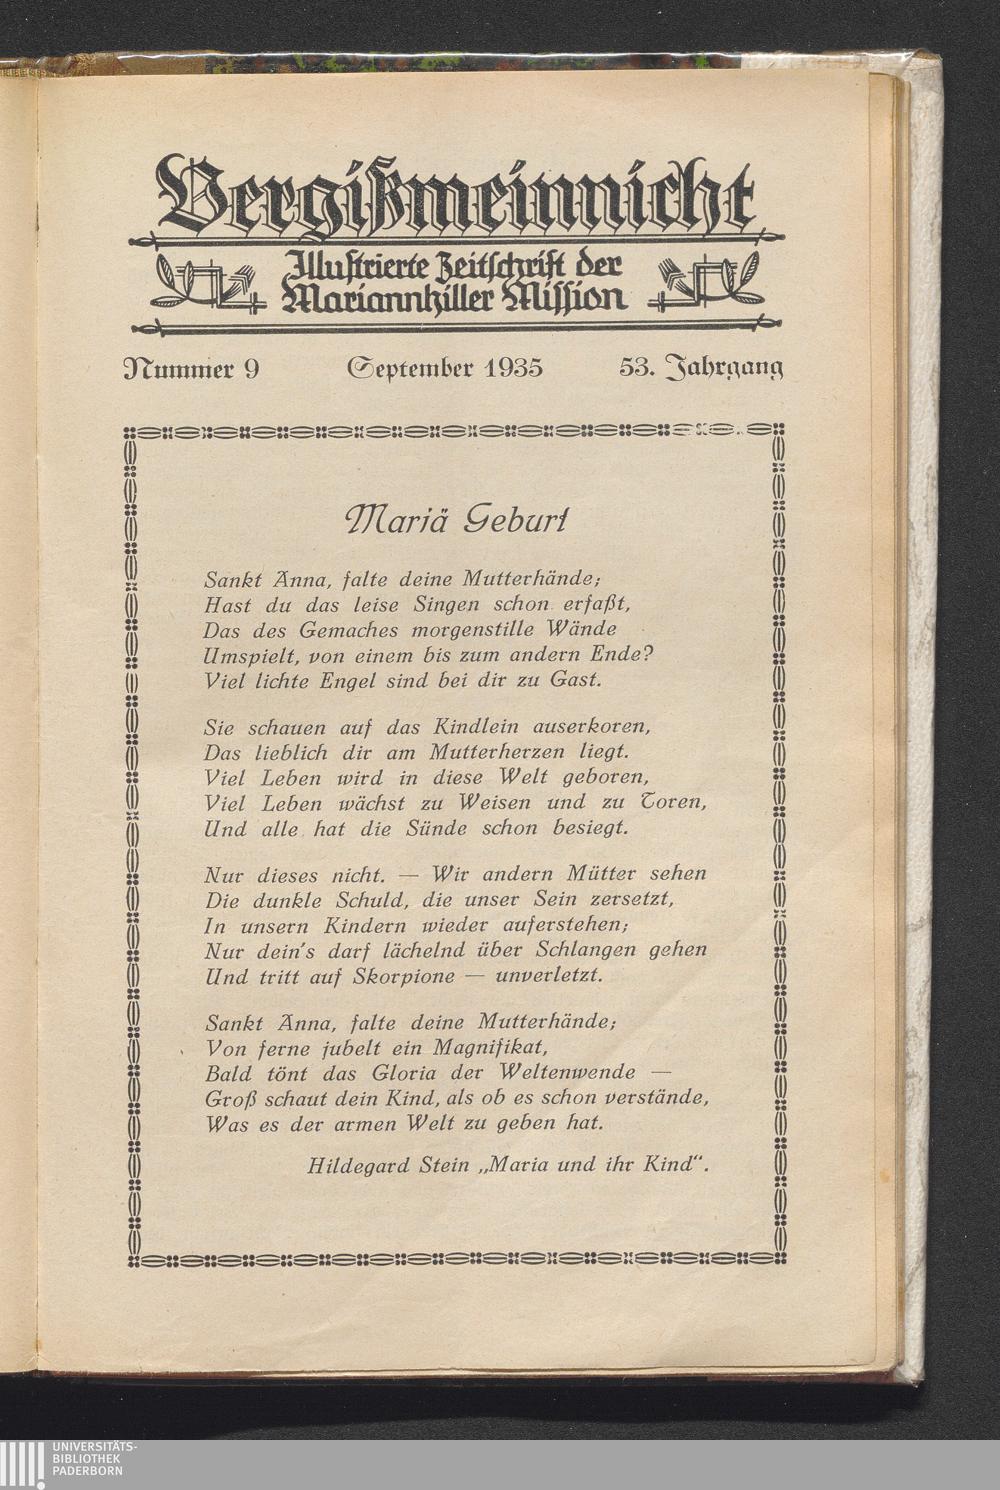 Vergißmeinnicht
Illustrierte Zeitschrift der
Mariannhiller Mission
Nummer 9 September 1935 53. Jahrgang
Mariä Geburt
Sankt Anna, falte deine Mutterhände;
Hast du das leise Singen schon erfaßt,
Das des Gemaches morgenstille Wände
Umspielt, von einem bis zum andern Ende?
Viel lichte Engel sind bei dir zu Gast.
Sie schauen auf das Kindlein auserkoren,
Das lieblich dir am Mutterherzen liegt.
Viel Leben wird in diese Welt geboren,
Viel Leben wächst zu Weisen und zu Toren,
Und alle hat die Sünde schon besiegt.
Nur dieses nicht. — Wir andern Mütter sehen
Die dunkle Schuld, die unser Sein zersetzt,
In unsern Kindern wieder auferstehen;
Nur dein's darf lächelnd über Schlangen gehen
Und tritt auf Skorpione — unverletzt.
Sankt Anna, falte deine Mutterhände;
Von ferne jubelt ein Magnifikat,
Bald tönt das Gloria der Weltenwende —
Groß schaut dein Kind, als ob es schon verstände,
Was es der armen Welt zu geben hat.
Hildegard Stein „Maria und ihr Kind“.
UNIVERSITÄTS-
BIBLIOTHEK
PADERBORN